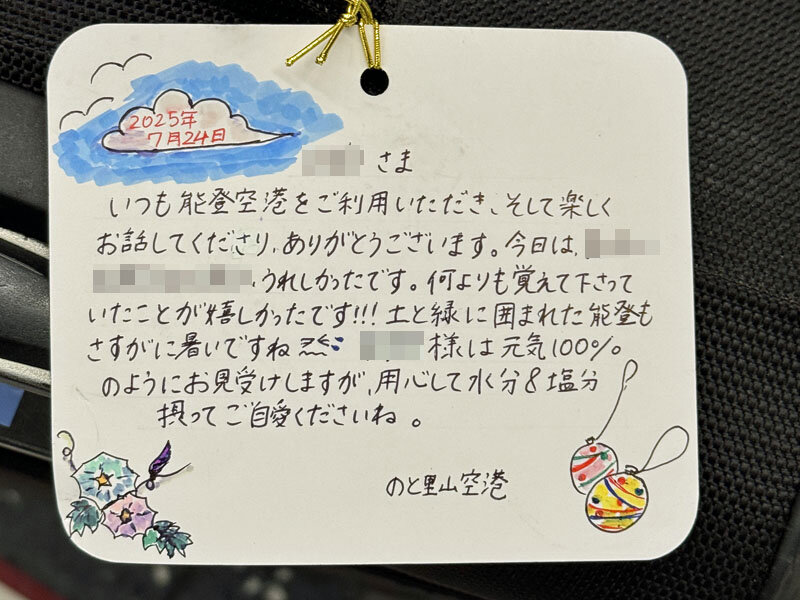 2025年
7月24日
さま
いつも能登空港をご利用いただき、そして楽しく
お話してくださり、ありがとうございます。今日は、
、うれしかったです。何よりも覚えて下さって
いたことが嬉しかったです!!!土と緑に囲まれた能登も
さすがに暑いですね 様は元気100%
のようにお見受けしますが、用心して水分&塩分
摂ってご自愛くださいね。
のと里山空港